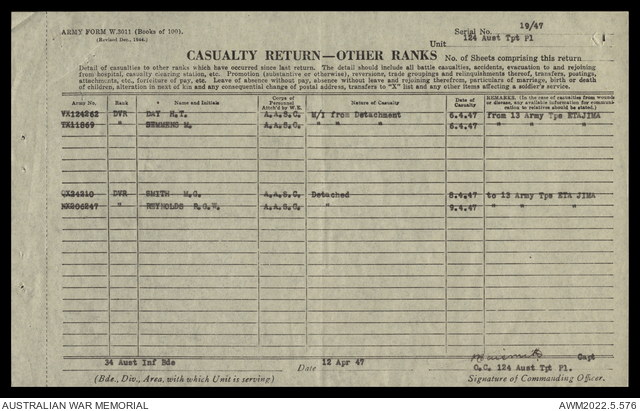 ARMY FORM W.3011 (Books of 100).
(Revised Dec., 1944.)
Serial No. 19/47
Unit 124 Aust Tpt Pl
CASUALTY RETURN—OTHER RANKS
No. of Sheets comprising this return 1
Detail of casualties to other ranks which have occurred since last return. The detail should include all battle casualties, accidents, evacuation to and rejoining
from hospital, casualty clearing station, etc. Promotion (substantive or otherwise), reversions, trade groupings and relinquishments thereof, transfers, postings,
attachments, etc., forfeiture of pay, etc. Leave of absence without pay, absence without leave and rejoining therefrom, particulars of marriage, birth or death
of children, alteration in next of kin and any consequential change of postal address, transfers to "X" list and any other items affecting a soldier's service.
Army No. Rank * Name and Initials Corps of Personnel Attach'd by W.E. Nature of Casualty Date of Casualty REMARKS. (In the case of casualties from wounds or disease, any available information for communication to relatives should be stated.)
VX124262 DVR DAY H.T. A.A.S.C. M/I from Detachment 6.4.47 from 13 Army Tps ETAJIMA
TX11869 " SEMMENS M. A.A.S.C. " " " 6.4.47 " " "
QX24210 DVR SMITH M.G. A.A.S.C. Detached 8.4.47 to 13 Army Tps ETA JIMA
NX206247 " REYNOLDS R.G.W. A.A.S.C. " 9.4.47 " " "
34 Aust Inf Bde
(Bde., Div., Area, with which Unit is serving)
Date 12 Apr 47
Capt
O.C. 124 Aust Tpt Pl.
Signature of Commanding Officer.
AUSTRALIAN WAR MEMORIAL
AWM2022.5.576